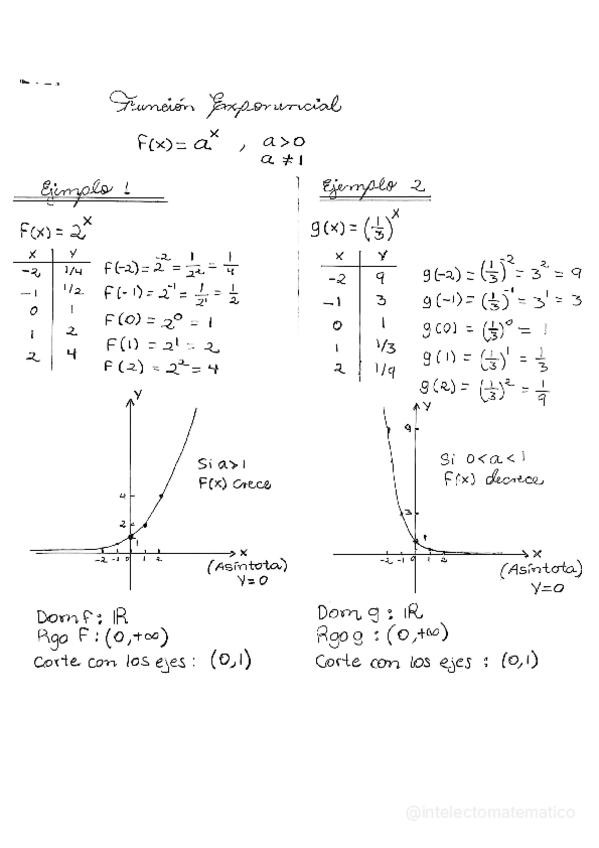 Función Exponencial
F(x) = a^x , a>0
a ≠ 1
Ejemplo 1
F(x) = 2^x
X Y
-2 1/4
-1 1/2
0 1
1 2
2 4
F(-2) = 2^-2 = 1/2^2 = 1/4
F(-1) = 2^-1 = 1/2^1 = 1/2
F(0) = 2^0 = 1
F(1) = 2^1 = 2
F(2) = 2^2 = 4
Y
4
2
1
-2 -1 0 1 2
X
Si a>1
F(x) crece
(Asíntota)
Y=0
Dom F: IR
Rgo F: (0,+∞)
Corte con los ejes: (0,1)
Ejemplo 2
g(x) = (1/3)^x
X Y
-2 9
-1 3
0 1
1 1/3
2 1/9
g(-2) = (1/3)^-2 = 3^2 = 9
g(-1) = (1/3)^-1 = 3^1 = 3
g(0) = (1/3)^0 = 1
g(1) = (1/3)^1 = 1/3
g(2) = (1/3)^2 = 1/9
Y
9
3
1
-2 -1 0 1 2
X
Si 0<a<1
F(x) decrece
(Asíntota)
Y=0
Dom g: IR
Rgo g: (0,+∞)
Corte con los ejes: (0,1)
@intelectomatematico